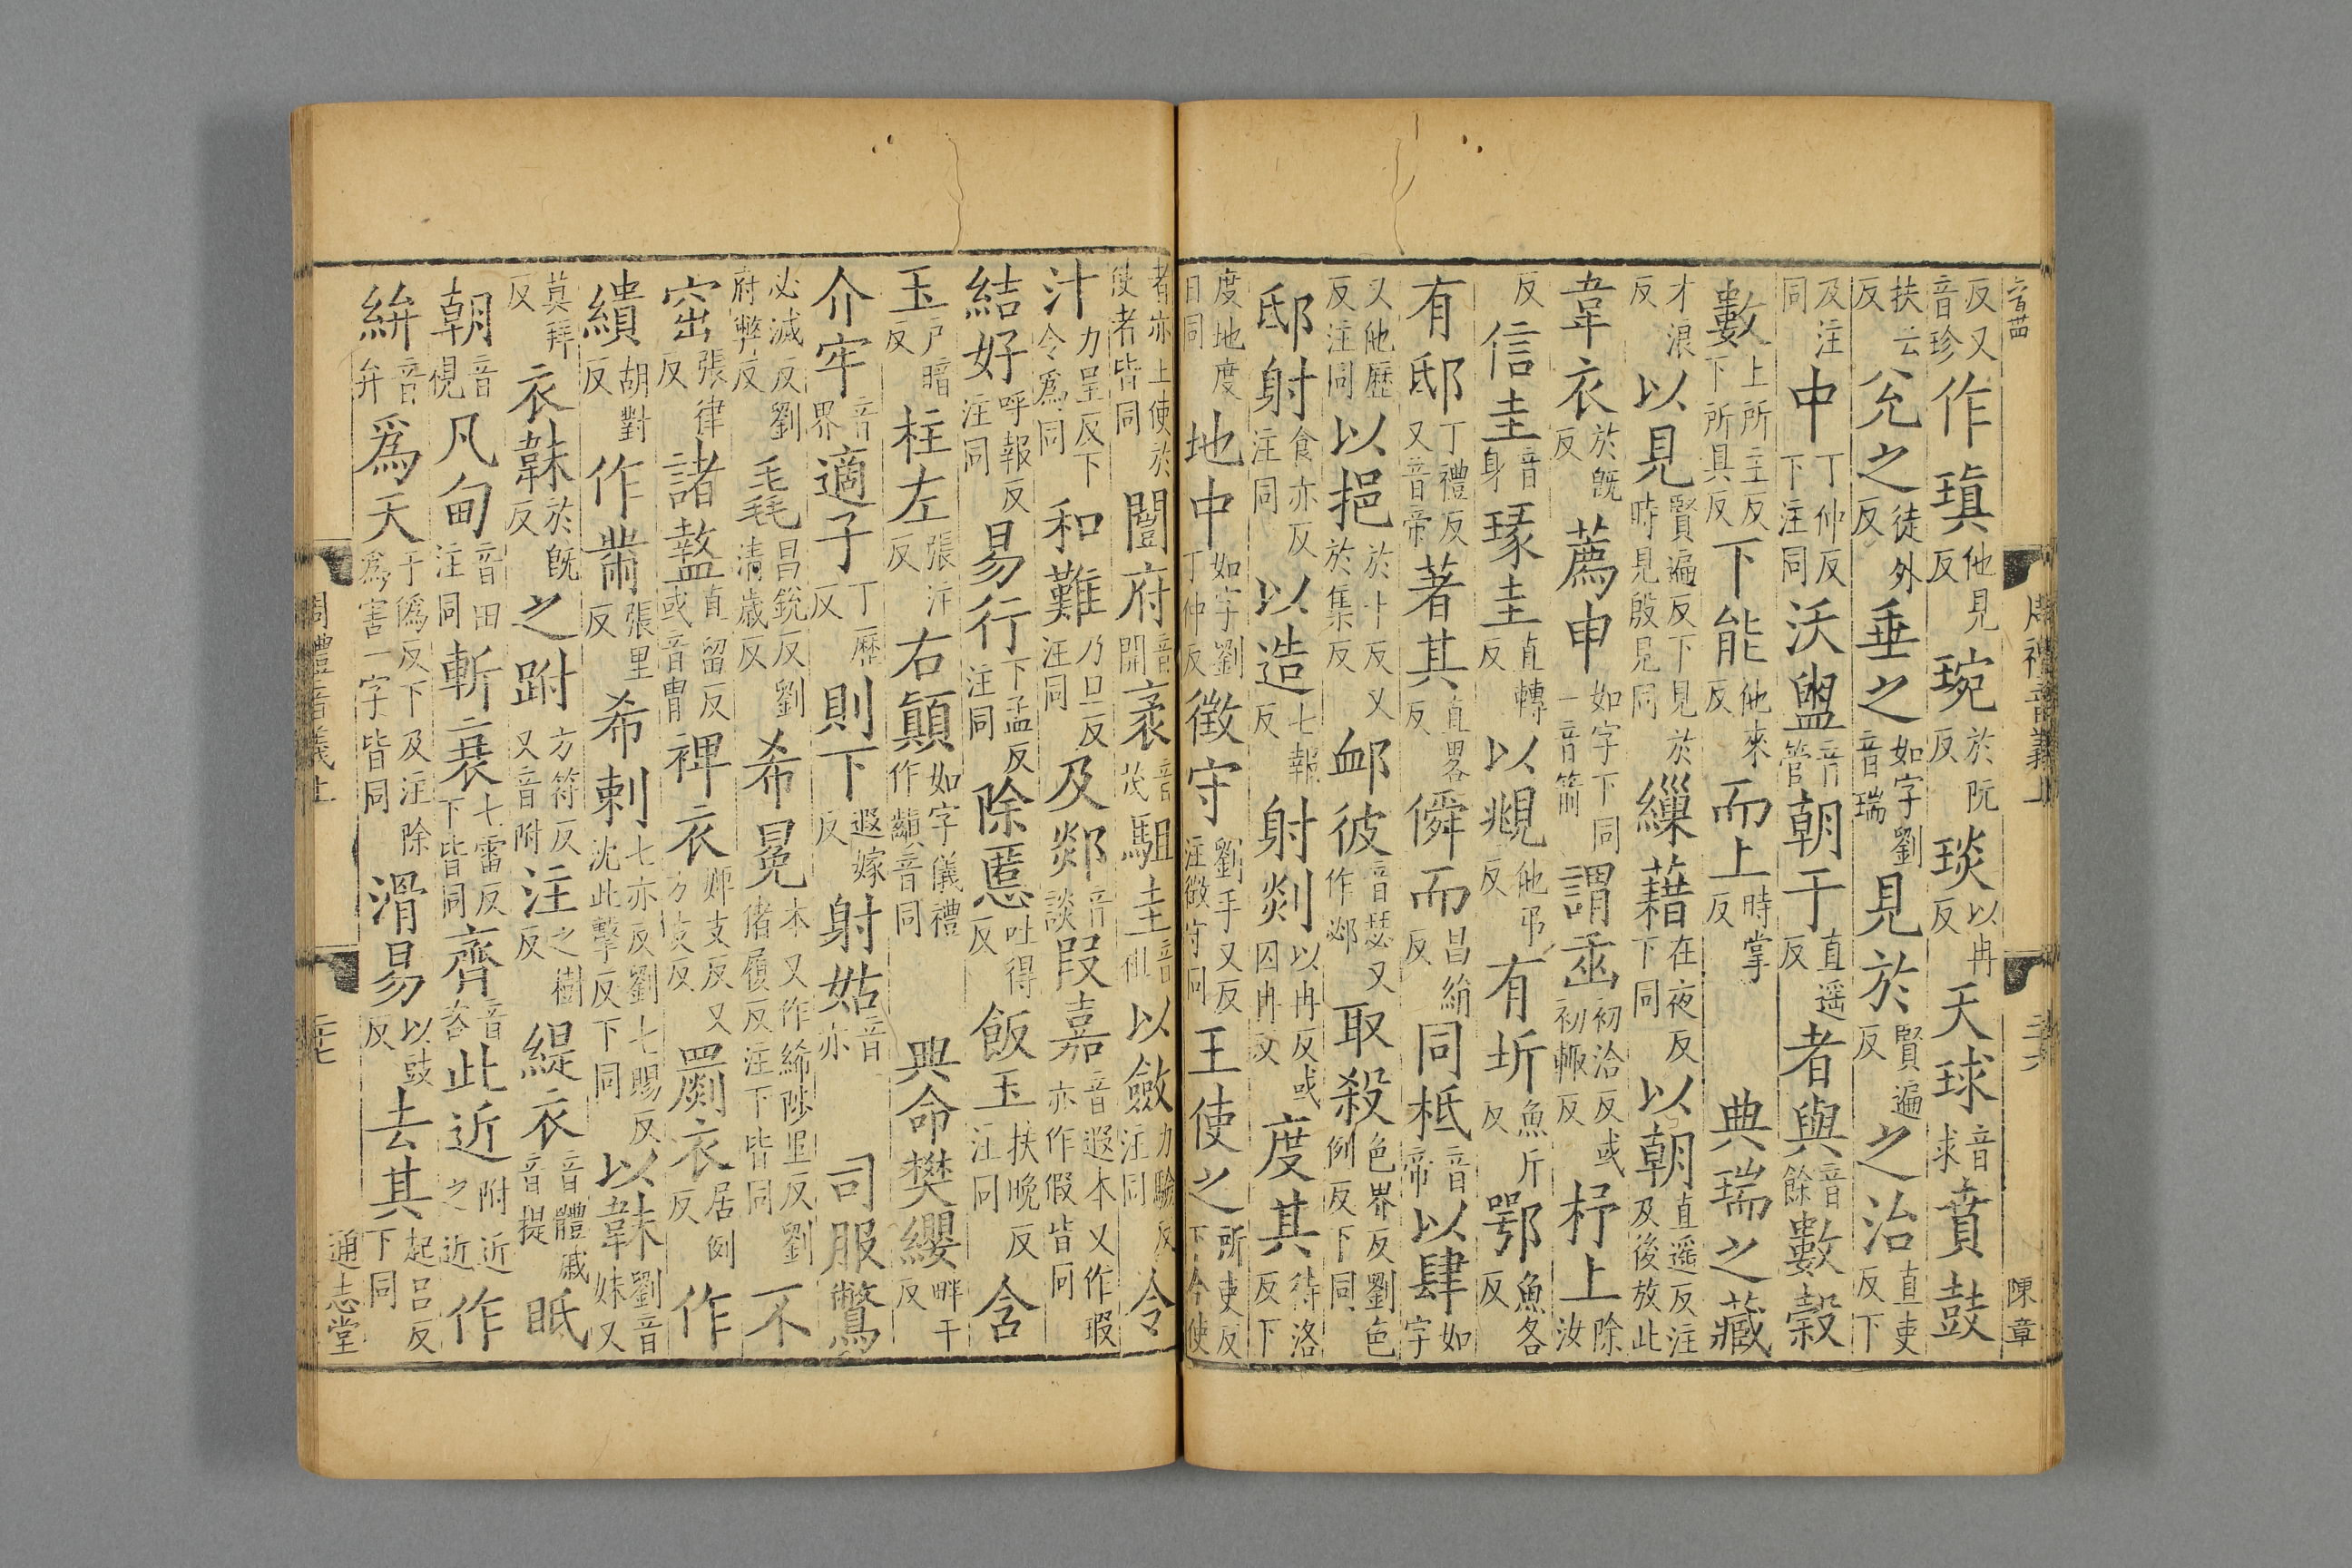 音茁 周禮音義上 二十六 陳章
反又音珍作瑱他見反琬於阮反琰以冉反天球音求賁鼓
扶云反兊之徒外反垂之如字劉音瑞見於賢遍反之治直吏反下
及注同中丁仲反下注同沃盥音管朝于直遥反者與音餘數穀
數上所主反下所具反下能他來反而上時掌反 典瑞之藏
才浪反以見賢遍反下見於時見殷見同繅藉在夜反下同以朝直遥反注及後放此
韋衣於旣反薦申如字下同一音箭謂臿初洽反或初輒反杼上除汝
反信圭音身瑑圭直轉反以覜他弔反有圻魚斤反鄂魚各反
有邸丁禮反又音帝著其直畧反僢而昌絹反同柢音帝以肆如字
又他歷反注同以挹於十反又於集反䘏彼音瑟又作邲取殺色界反劉色例反下同
邸射食亦反注同以造七報反射剡以冉反或囚冉反度其待洛反下
度地度日同地中如字劉丁仲反徵守劉手又反注徵守同王使之所吏反下今使
者亦上使於使者皆同闓府音開袤音茂駔圭音祖以斂力驗反注同令
汁力呈反下令爲同和難乃旦反注同及郯音談叚嘉音遐本又作瑕亦作假皆同
結好呼報反注同易行下孟反注同除慝吐得反飯玉扶晚反注同含
玉戶暗反柱左張注反右顚如字儀禮作𩕳音同 典命樊纓畔干反
介牢音界適子丁歷反則下遐嫁反射姑音亦 司服鷩
必滅反劉府弊反毳昌銳反劉清歲反希冕本又作絺陟里反劉猪履反注下皆同不
窋張律反諸盩直留反或音胄裨衣婢支反又方支反罽衣居例反作
繢胡對反作黹張里反希刺七亦反劉七賜反沈此擊反下同以韎劉音妹又
莫拜反衣韎於旣反之跗方符反又音附注之樹反緹衣音體戚音提眡
朝音視凡甸音田注同斬衰七雷反下皆同齊音咨此近附近之近作
絣音弁爲天于僞反下及注除爲害一字皆同滑易以豉反去其起呂反下同
周禮音義上 二十七 通志堂